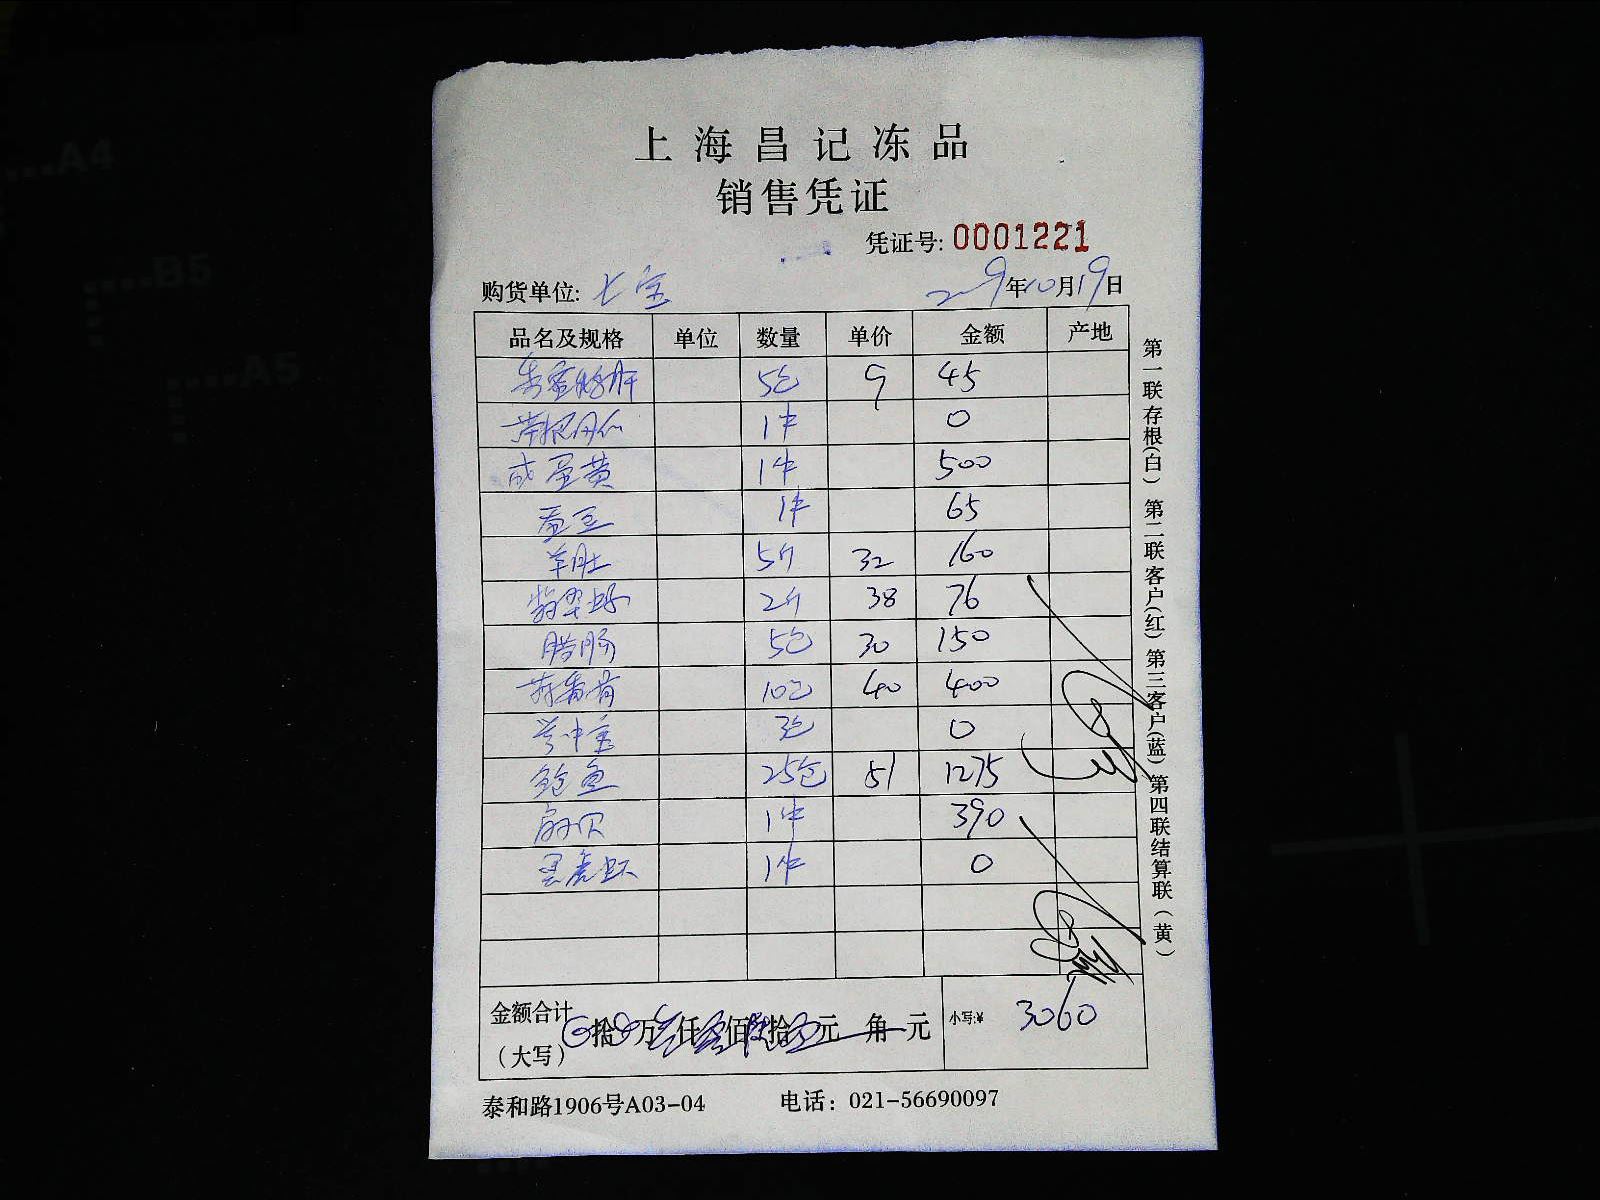 上海昌记冻品
销售凭证
凭证号: 0001221
购货单位: 七宝 2 9年10月19日
品名及规格 单位 数量 单价 金额 产地
5包 9 45
1件 0
咸蛋黄 1件 500
蚕豆 1件 65
羊肚 5斤 32 160
翡翠 2斤 38 76
腊肠 5包 30 150
10包 40 400
3包 0
鲍鱼 25包 51 1275
扇贝 1件 390
黑虎虾 1件 0
金额合计 拾 万 仟 佰 拾 元 角 元 小写:¥ 3060
（大写）
泰和路1906号A03-04 电话：021-56690097
第一联存根(白) 第二联客户(红) 第三客户(蓝) 第四联结算联(黄)
A4
B5
A5